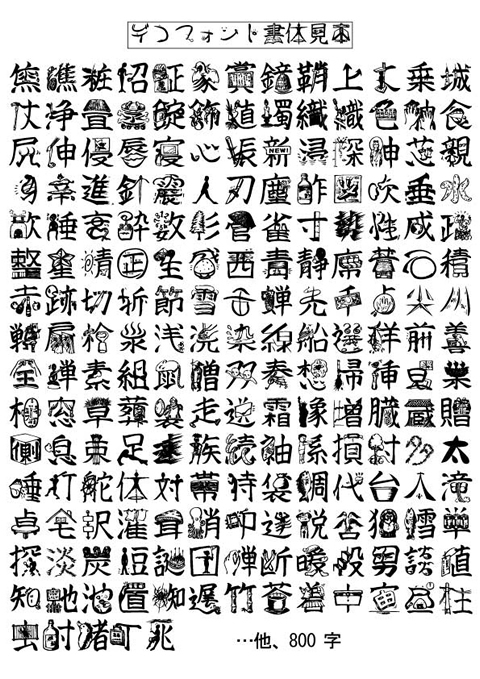 デコフォント書体見本
焦礁粧招証象賞鐘鞘上丈乗城
仗浄畳錠飾織職色食
尻伸優唇寝心振新浸深神芯親
辛進針震人刃塵酢図吹垂水
炊睡衰酔数杉菅雀寸性成政
整星晴正生西青静席昔石積
赤跡切折節雪舌蝉先千占尖川
戦扇栓泉浅洗染線船選鮮前善
全禅素組鼠双奏想掃挿巣
相窓草葬装走送霜像増臓蔵贈
側息束足速族続袖孫損討多太
唾打舵体対帯待袋鯛代台大滝
卓宅択濯茸叩達脱谷狸鱈単
探淡炭短誕団弾断暖段男談値
知地池置蜘遅竹着中宙昼柱
虫酎猪町兆 …他、800 字